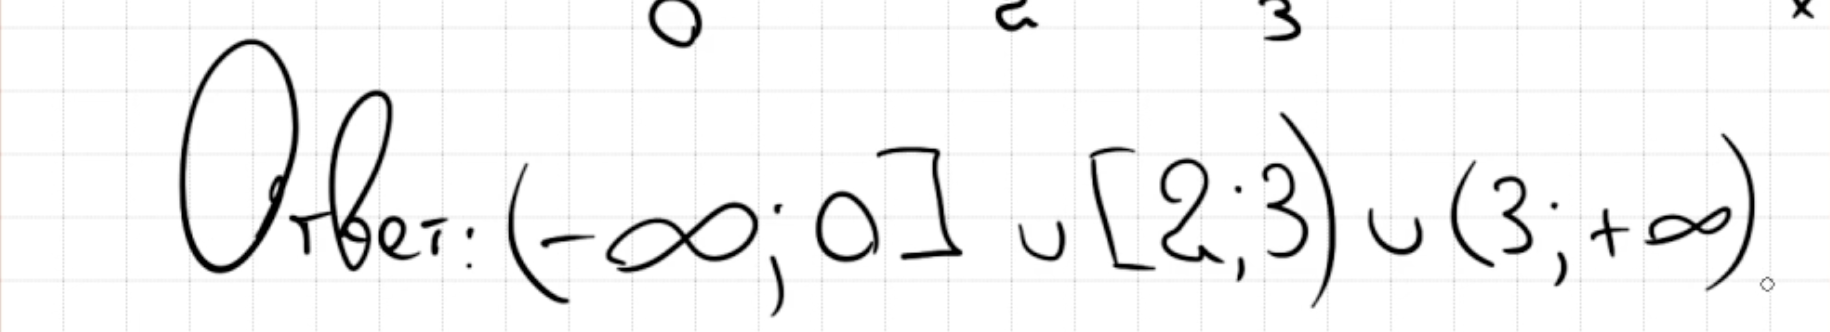 0 2 3 x
Ответ: (-∞; 0] ∪ [2; 3) ∪ (3; +∞).